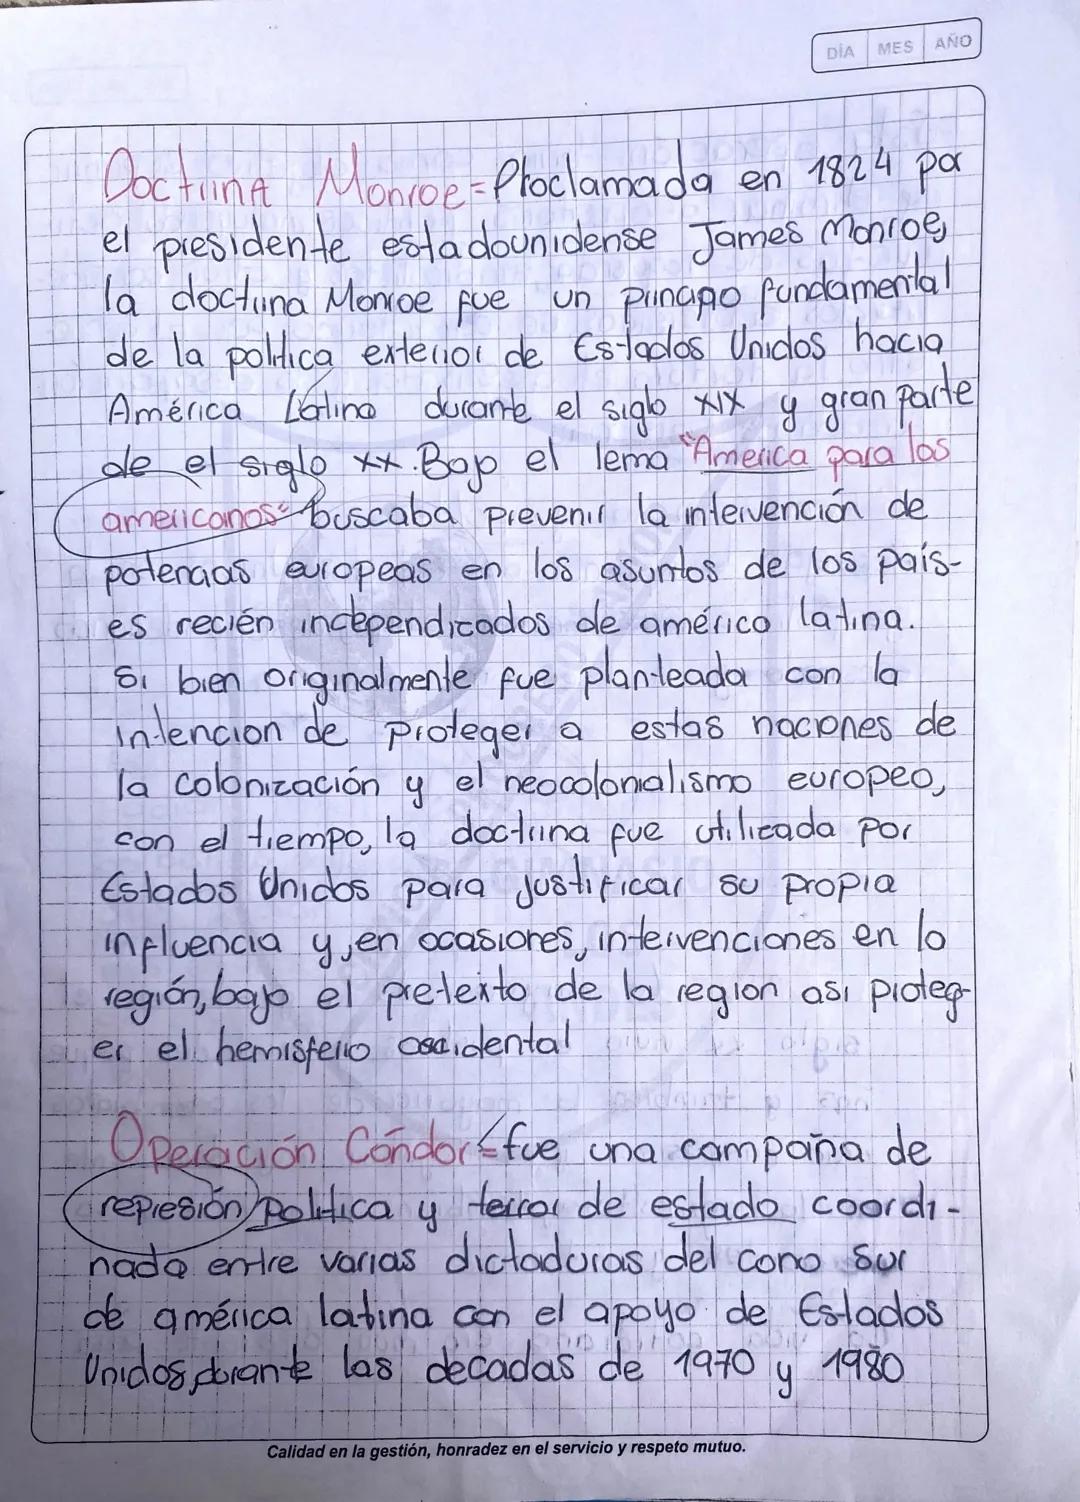 DÍA MES AÑO
Doctrina Monroe = Proclamada en 1824 por
el presidente estadounidense James Monroe,
la doctrina Monroe fue un principio fundamental
de la política exterior de Estados Unidos hacia
América Latina durante el siglo XIX y gran parte
de el siglo XX. Bajo el lema "America para los
americanos" buscaba prevenir la intervención de
potencias europeas en los asuntos de los país-
es recién independizados de américa latina.
Si bien originalmente fue planteada con la
intencion de proteger a estas naciones de
la colonización y el neocolonialismo europeo,
con el tiempo, la doctrina fue utilizada por
Estados Unidos para justificar su propia
influencia y, en ocasiones, intervenciones en la
región, bajo el pretexto de la region asi proteg-
er el hemisferio occidental
Operación Cóndor = fue una campaña de
represión política y terror de estado coordi-
nada entre varias dictaduras del cono sur
de américa latina con el apoyo de Estados
Unidos, durante las decadas de 1970 y 1980
Calidad en la gestión, honradez en el servicio y respeto mutuo.